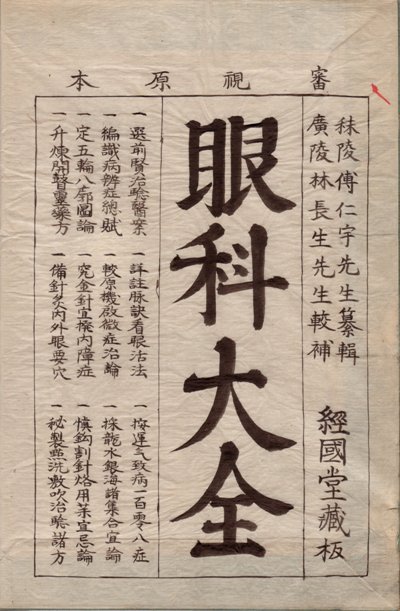 審視原本
秣陵傅仁宇先生纂輯
廣陵林長生先生較補
經國堂藏板
眼科大全
一選前賢治驗醫案
一編識病辨症總賦
一定五輪八廓圖論
一升煉開瞽靈藥方
一詳註脉訣看眼活法
一較原機啟微症治論
一究金針宜撥内障症
一備針灸内外眼要穴
一按運气致病一百零八症
一採龍水銀海諸集合宜論
一慎鈎割針烙用藥宜忌論
一秘製點洗敷吹治驗諸方